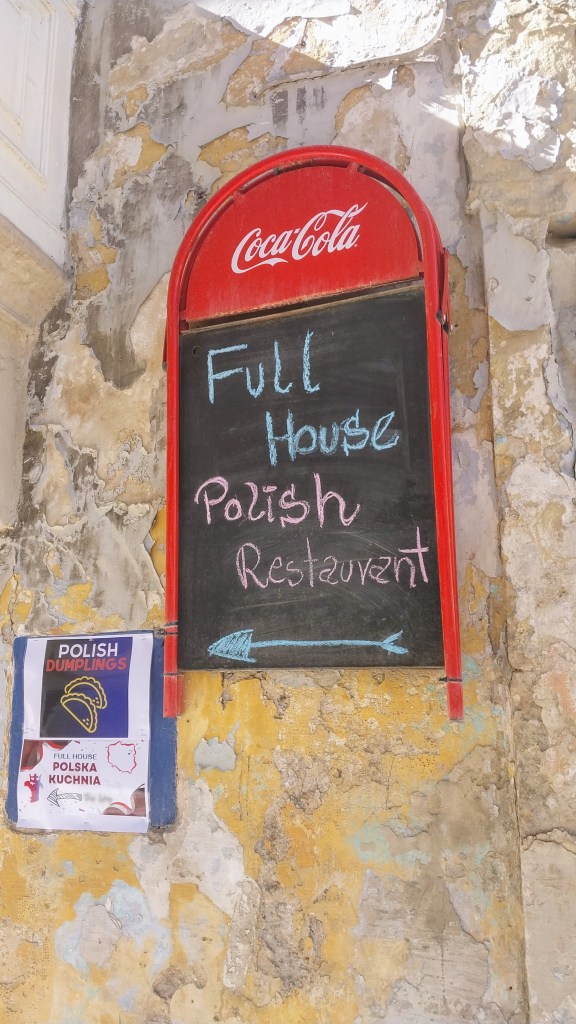 Coca-Cola
Full
House
Polish
Restauvant
POLISH
DUMPLINGS
FULL HOUSE
POLSKA
KUCHNIA